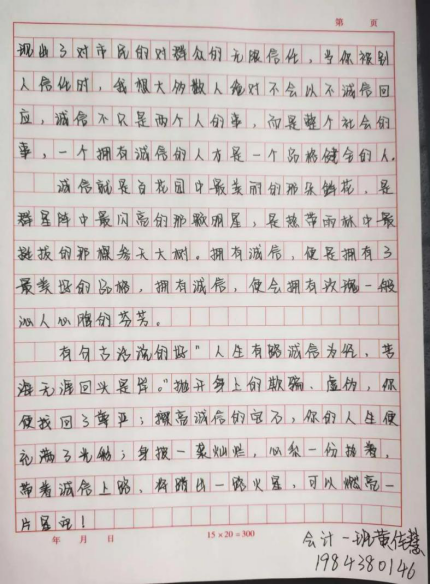 第 页
现出了对市民的对群众的无限信任，当你被别
人信任时，我想大多数人绝对不会以不诚信回
应，诚信不只是两个人的事，而是整个社会的
事，一个拥有诚信的人才是一个品格健全的人.
诚信就是百花园中最美丽的那朵鲜花，是
群星阵中最闪亮的那颗明星，是热带雨林中最
挺拔的那棵参天大树。拥有诚信，便是拥有了
最美好的品格，拥有诚信，便会拥有玫瑰一般
沁人心脾的芬芳。
有句古话说的好"人生有路诚信为径，苦
海无涯回头是岸。"抛开身上的欺骗、虚伪，你
便找回了尊严；擦亮诚信的宝石，你的人生便
充满了光彩；身披一袭灿烂，心系一份执着，
带着诚信上路，将踏出一路火星，可以燃亮一
片星空！
年 月 日 15×20=300
会计一班黄佳慧
1984380146